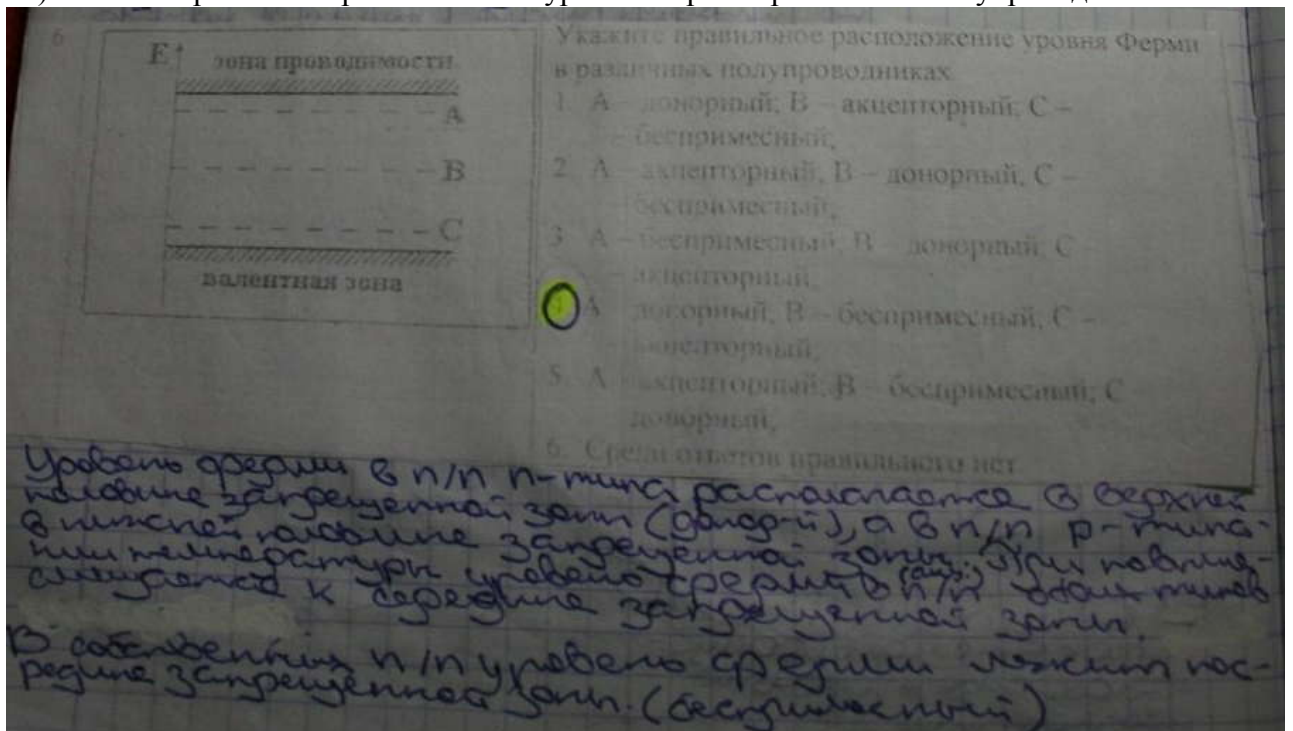 6
E
зона проводимости
A
B
C
валентная зона
Укажите правильное расположение уровня Ферми
в различных полупроводниках
1. А – донорный; В – акцепторный; С –
– беспримесный;
2. А – акцепторный; В – донорный; С –
– беспримесный;
3. А – беспримесный; В – донорный; С
– акцепторный;
4 А – донорный; В – беспримесный; С –
– акцепторный;
5. А – акцепторный; В – беспримесный; С
донорный;
6. Среди ответов правильного нет
Уровень ферми в п/п n-типа располагается в верхней
половине запрещенной зоны (донор-й), а в п/п р-типа-
в нижней половине запрещенной зоны. (акц.) При повыше-
нии температуры уровень ферми в п/п обоих типов
смещается к середине запрещенной зоны.
В собственных п/п уровень ферми лежит пос-
редине запрещенной зоны. (беспримесный)